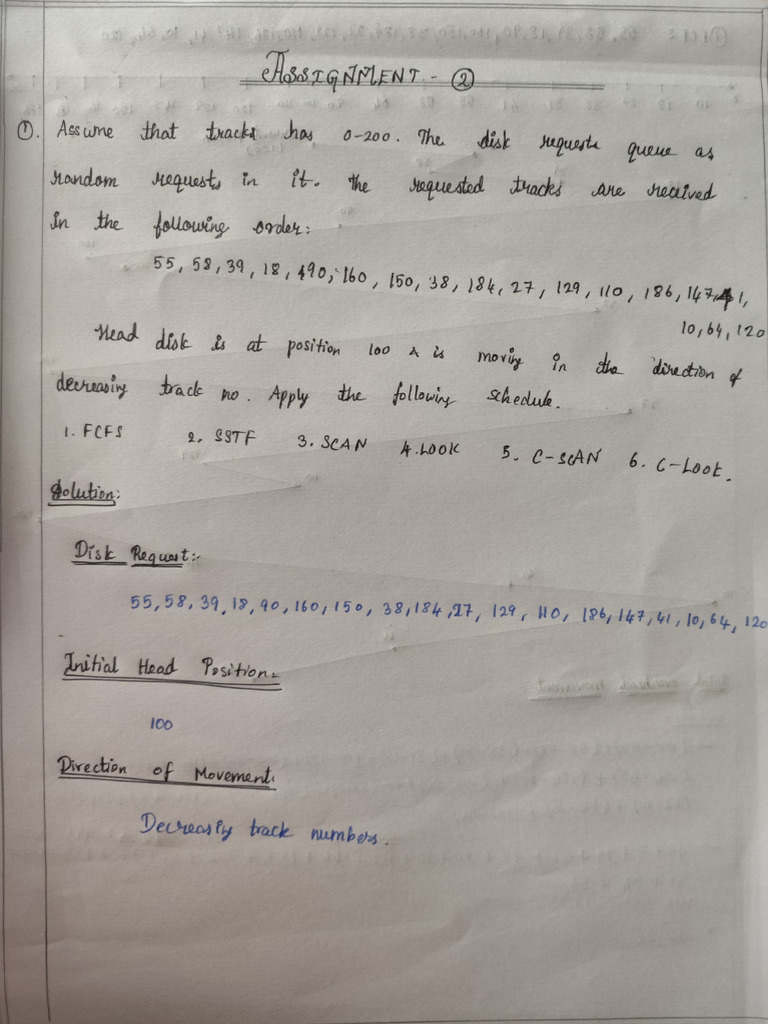 ASSIGNMENT - ②
①. Assume that tracks has 0-200. The disk requests queue as
random requests in it. The requested tracks are received
in the following order:
55, 58, 39, 18, 90, 160, 150, 38, 184, 27, 129, 110, 186, 147, 41,
10, 64, 120
Head disk is at position 100 & is moving in the direction of
decreasing track no. Apply the following schedule.
1. FCFS 2. SSTF 3. SCAN 4. LOOK 5. C-SCAN 6. C-LOOK.
Solution:
Disk Request:-
55, 58, 39, 18, 90, 160, 150, 38, 184, 27, 129, 110, 186, 147, 41, 10, 64, 120
Initial Head Position:
100
Direction of Movement:
Decreasing track numbers.